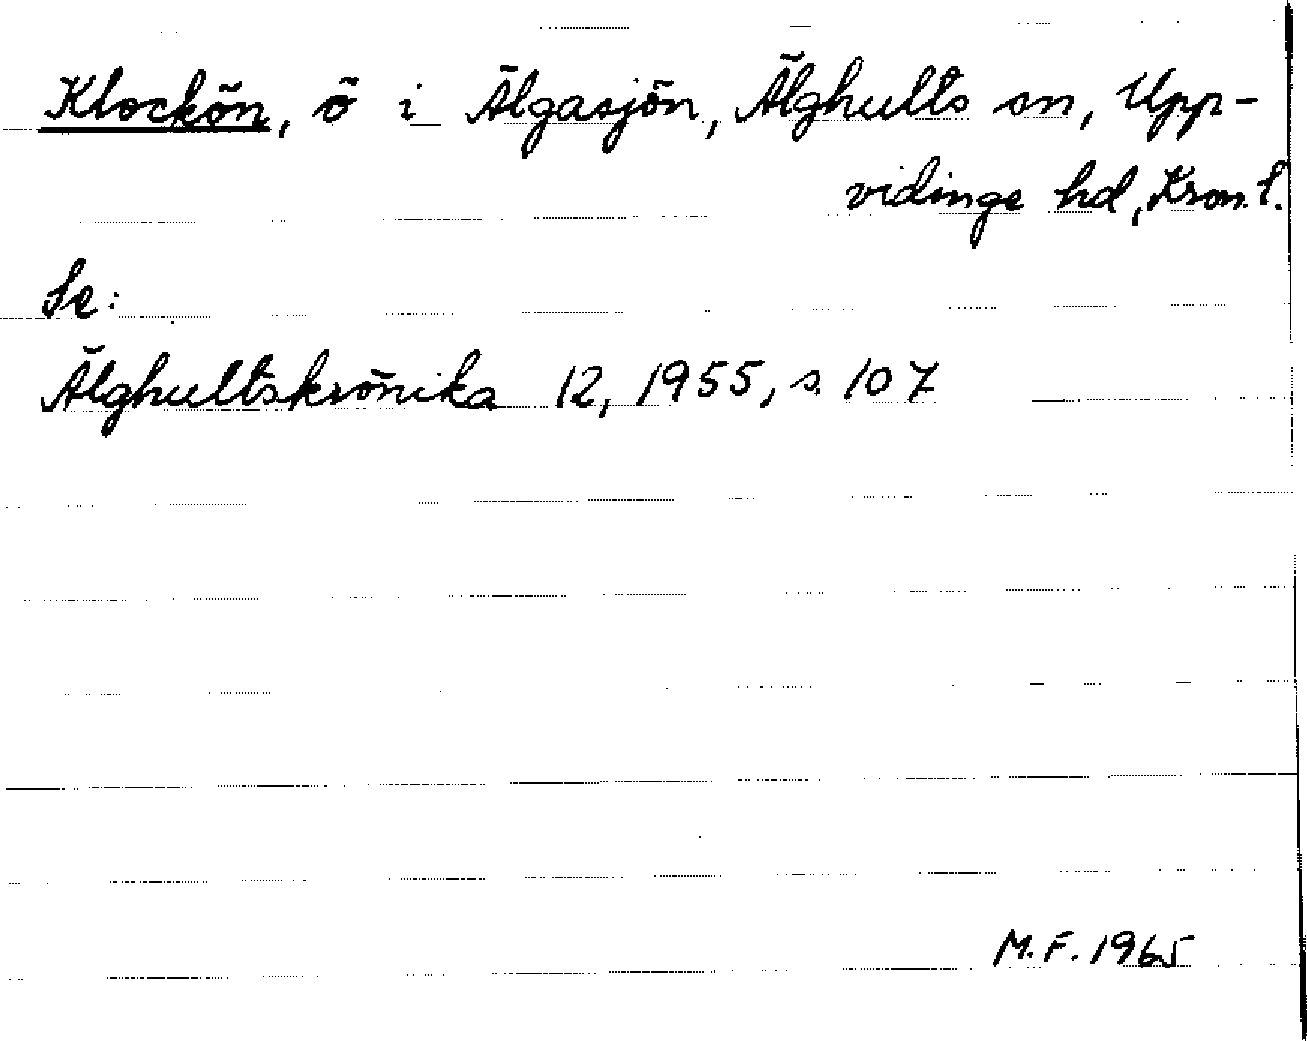 Klockön, ö i Älgasjön, Älghults sn, Upp-
vidinge hd, Kron. l.
Se:
Älghultskrönika 12, 1955, s. 107
M.F. 1965